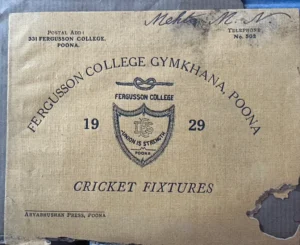 Mehta M. N.
POSTAL ADD:
531 FERGUSSON COLLEGE,
POONA.
TELEPHONE
No. 503
FERGUSSON COLLEGE GYMKHANA, POONA
FERGUSSON COLLEGE
19 29
UNION IS STRENGTH
POONA
CRICKET FIXTURES
ARYABHUSHAN PRESS, POONA